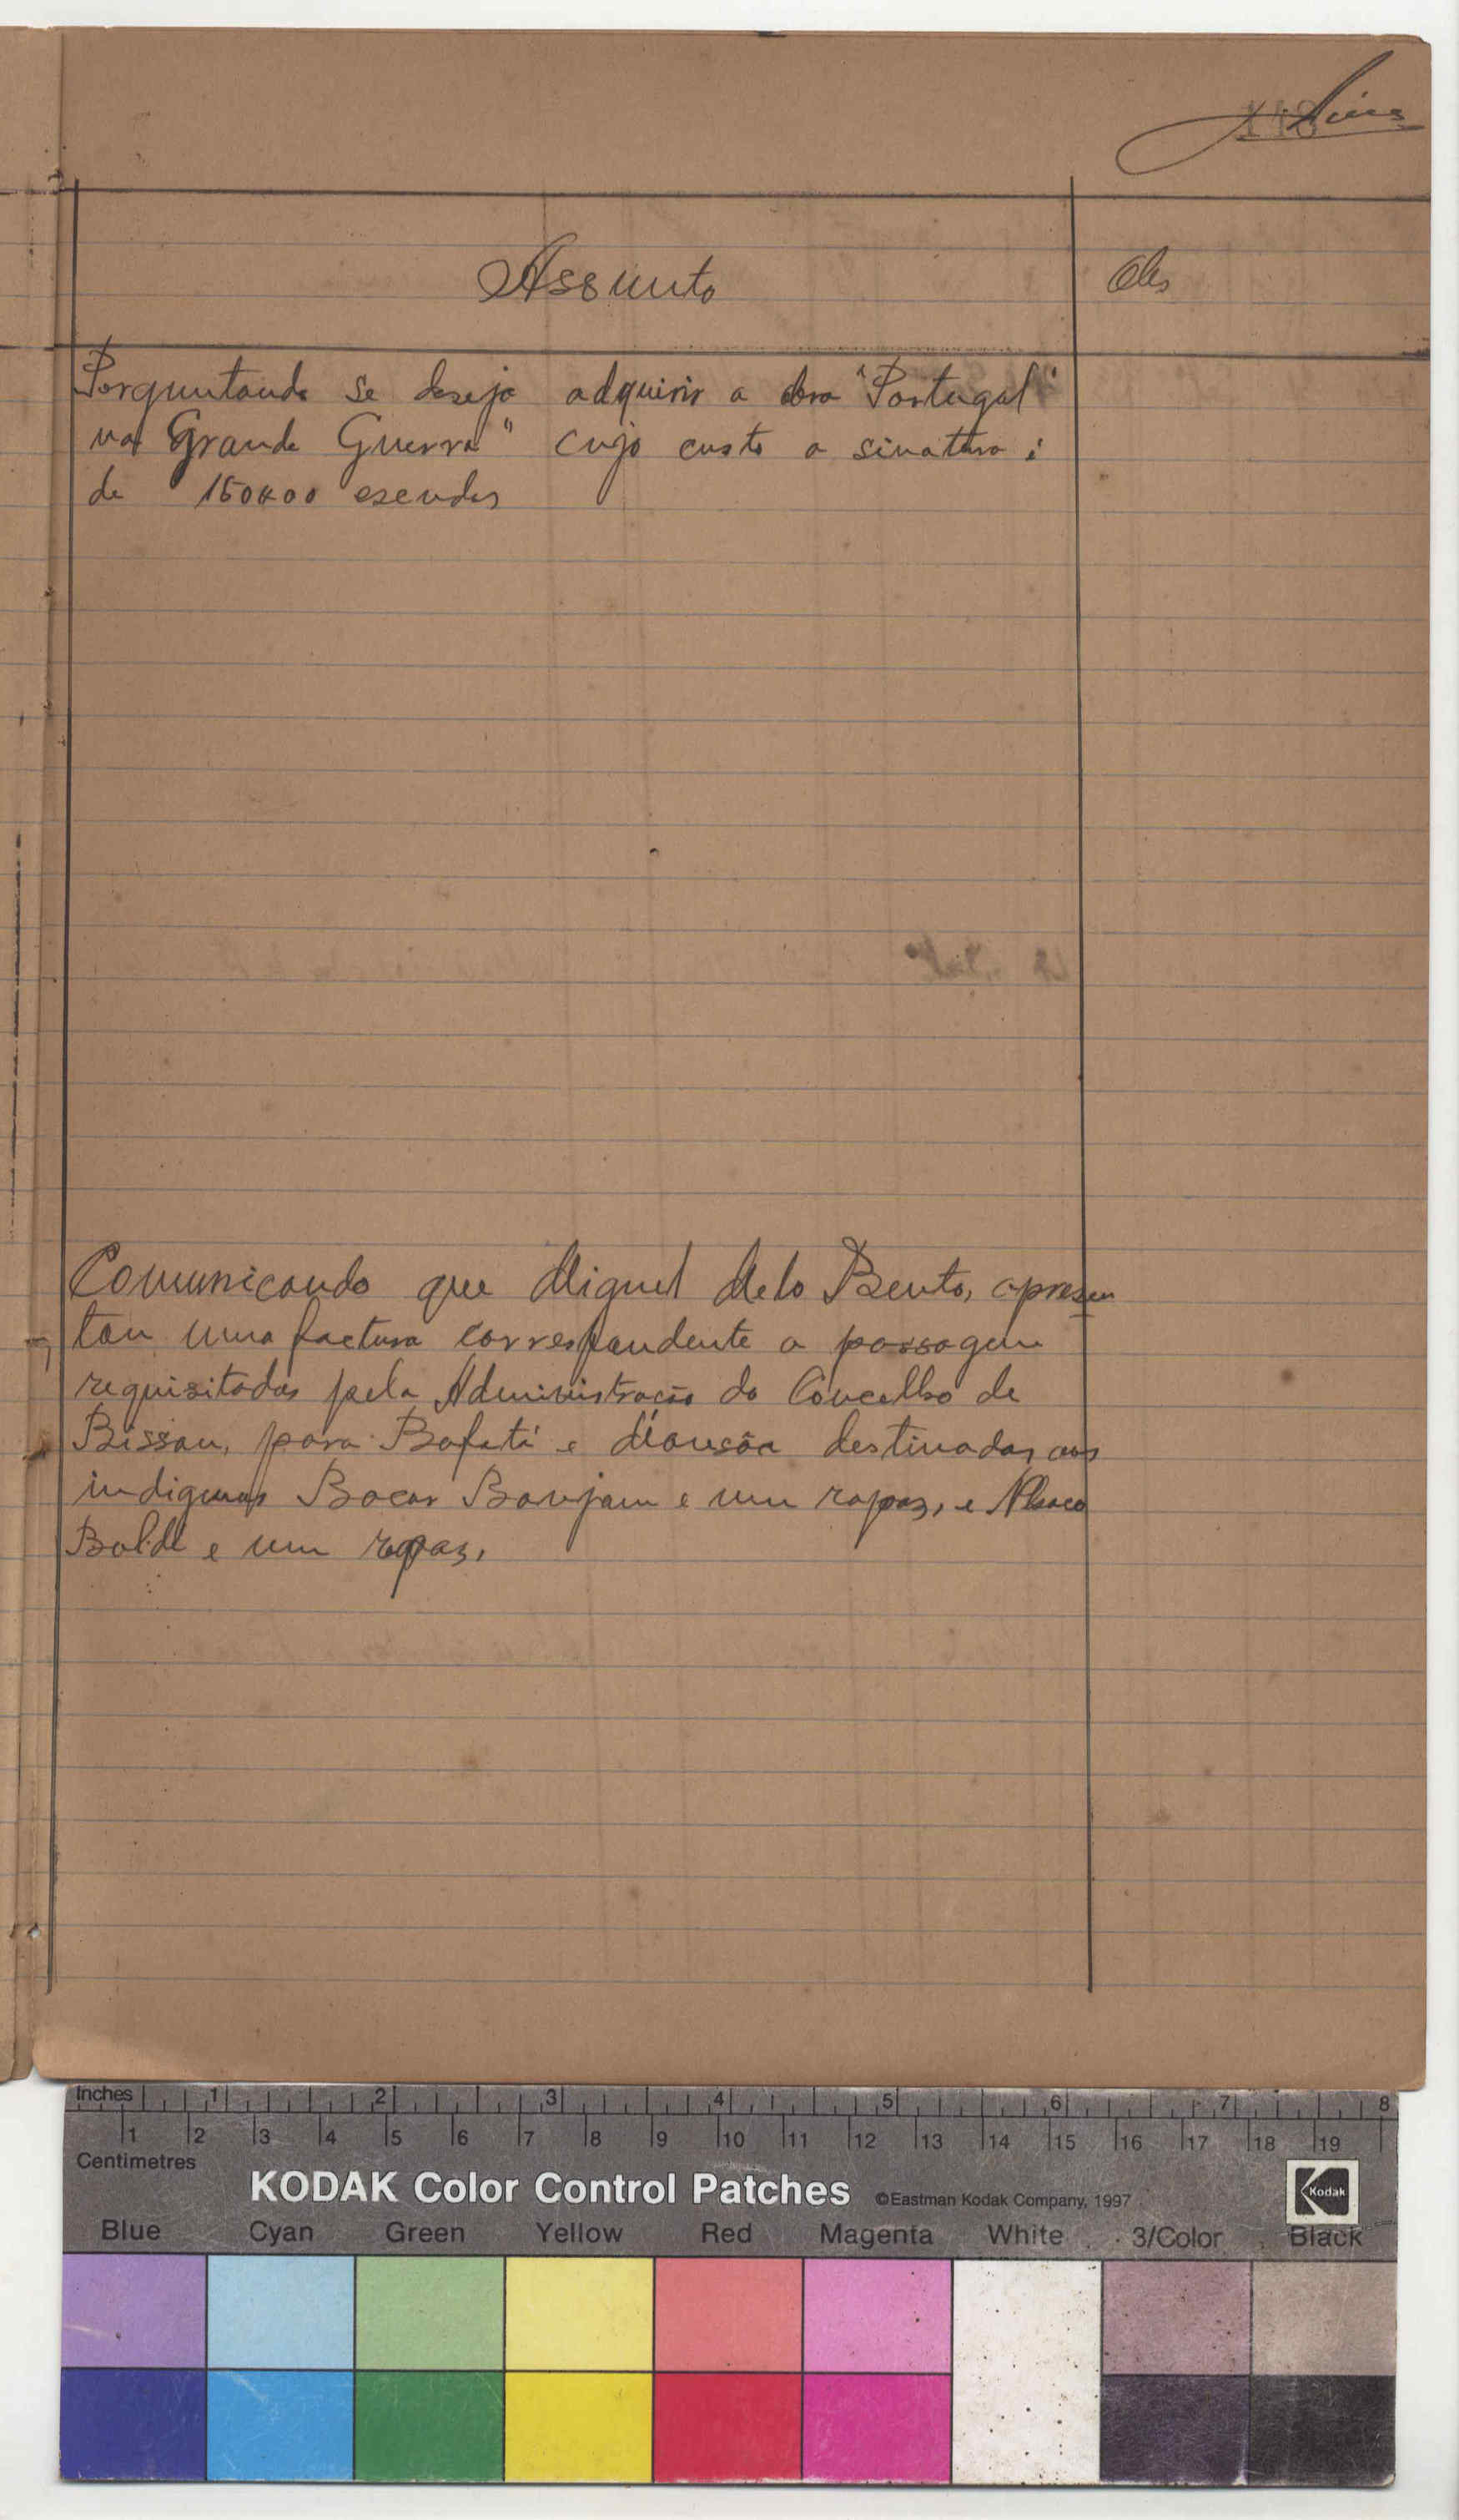 148
Assunto
Obs
Perguntando se deseja adquirir a obra "Portugal"
na Grande Guerra" cujo custo a sinattura é
de 150$00 escudos
Comunicando que Miguel Melo Bento, apresen
tou uma factura correspondente a passagem
requisitadas pela Administração do Concelho de
Bissau, para Bafatá e destinadas aos
indigenas Bocar Banjam e um rapaz, e
Baldé e um rapaz,
Inches 1 2 3 4 5 6 7 8
1 2 3 4 5 6 7 8 9 10 11 12 13 14 15 16 17 18 19
Centimetres
KODAK Color Control Patches ©Eastman Kodak Company, 1997 Kodak
Blue Cyan Green Yellow Red Magenta White 3/Color Black